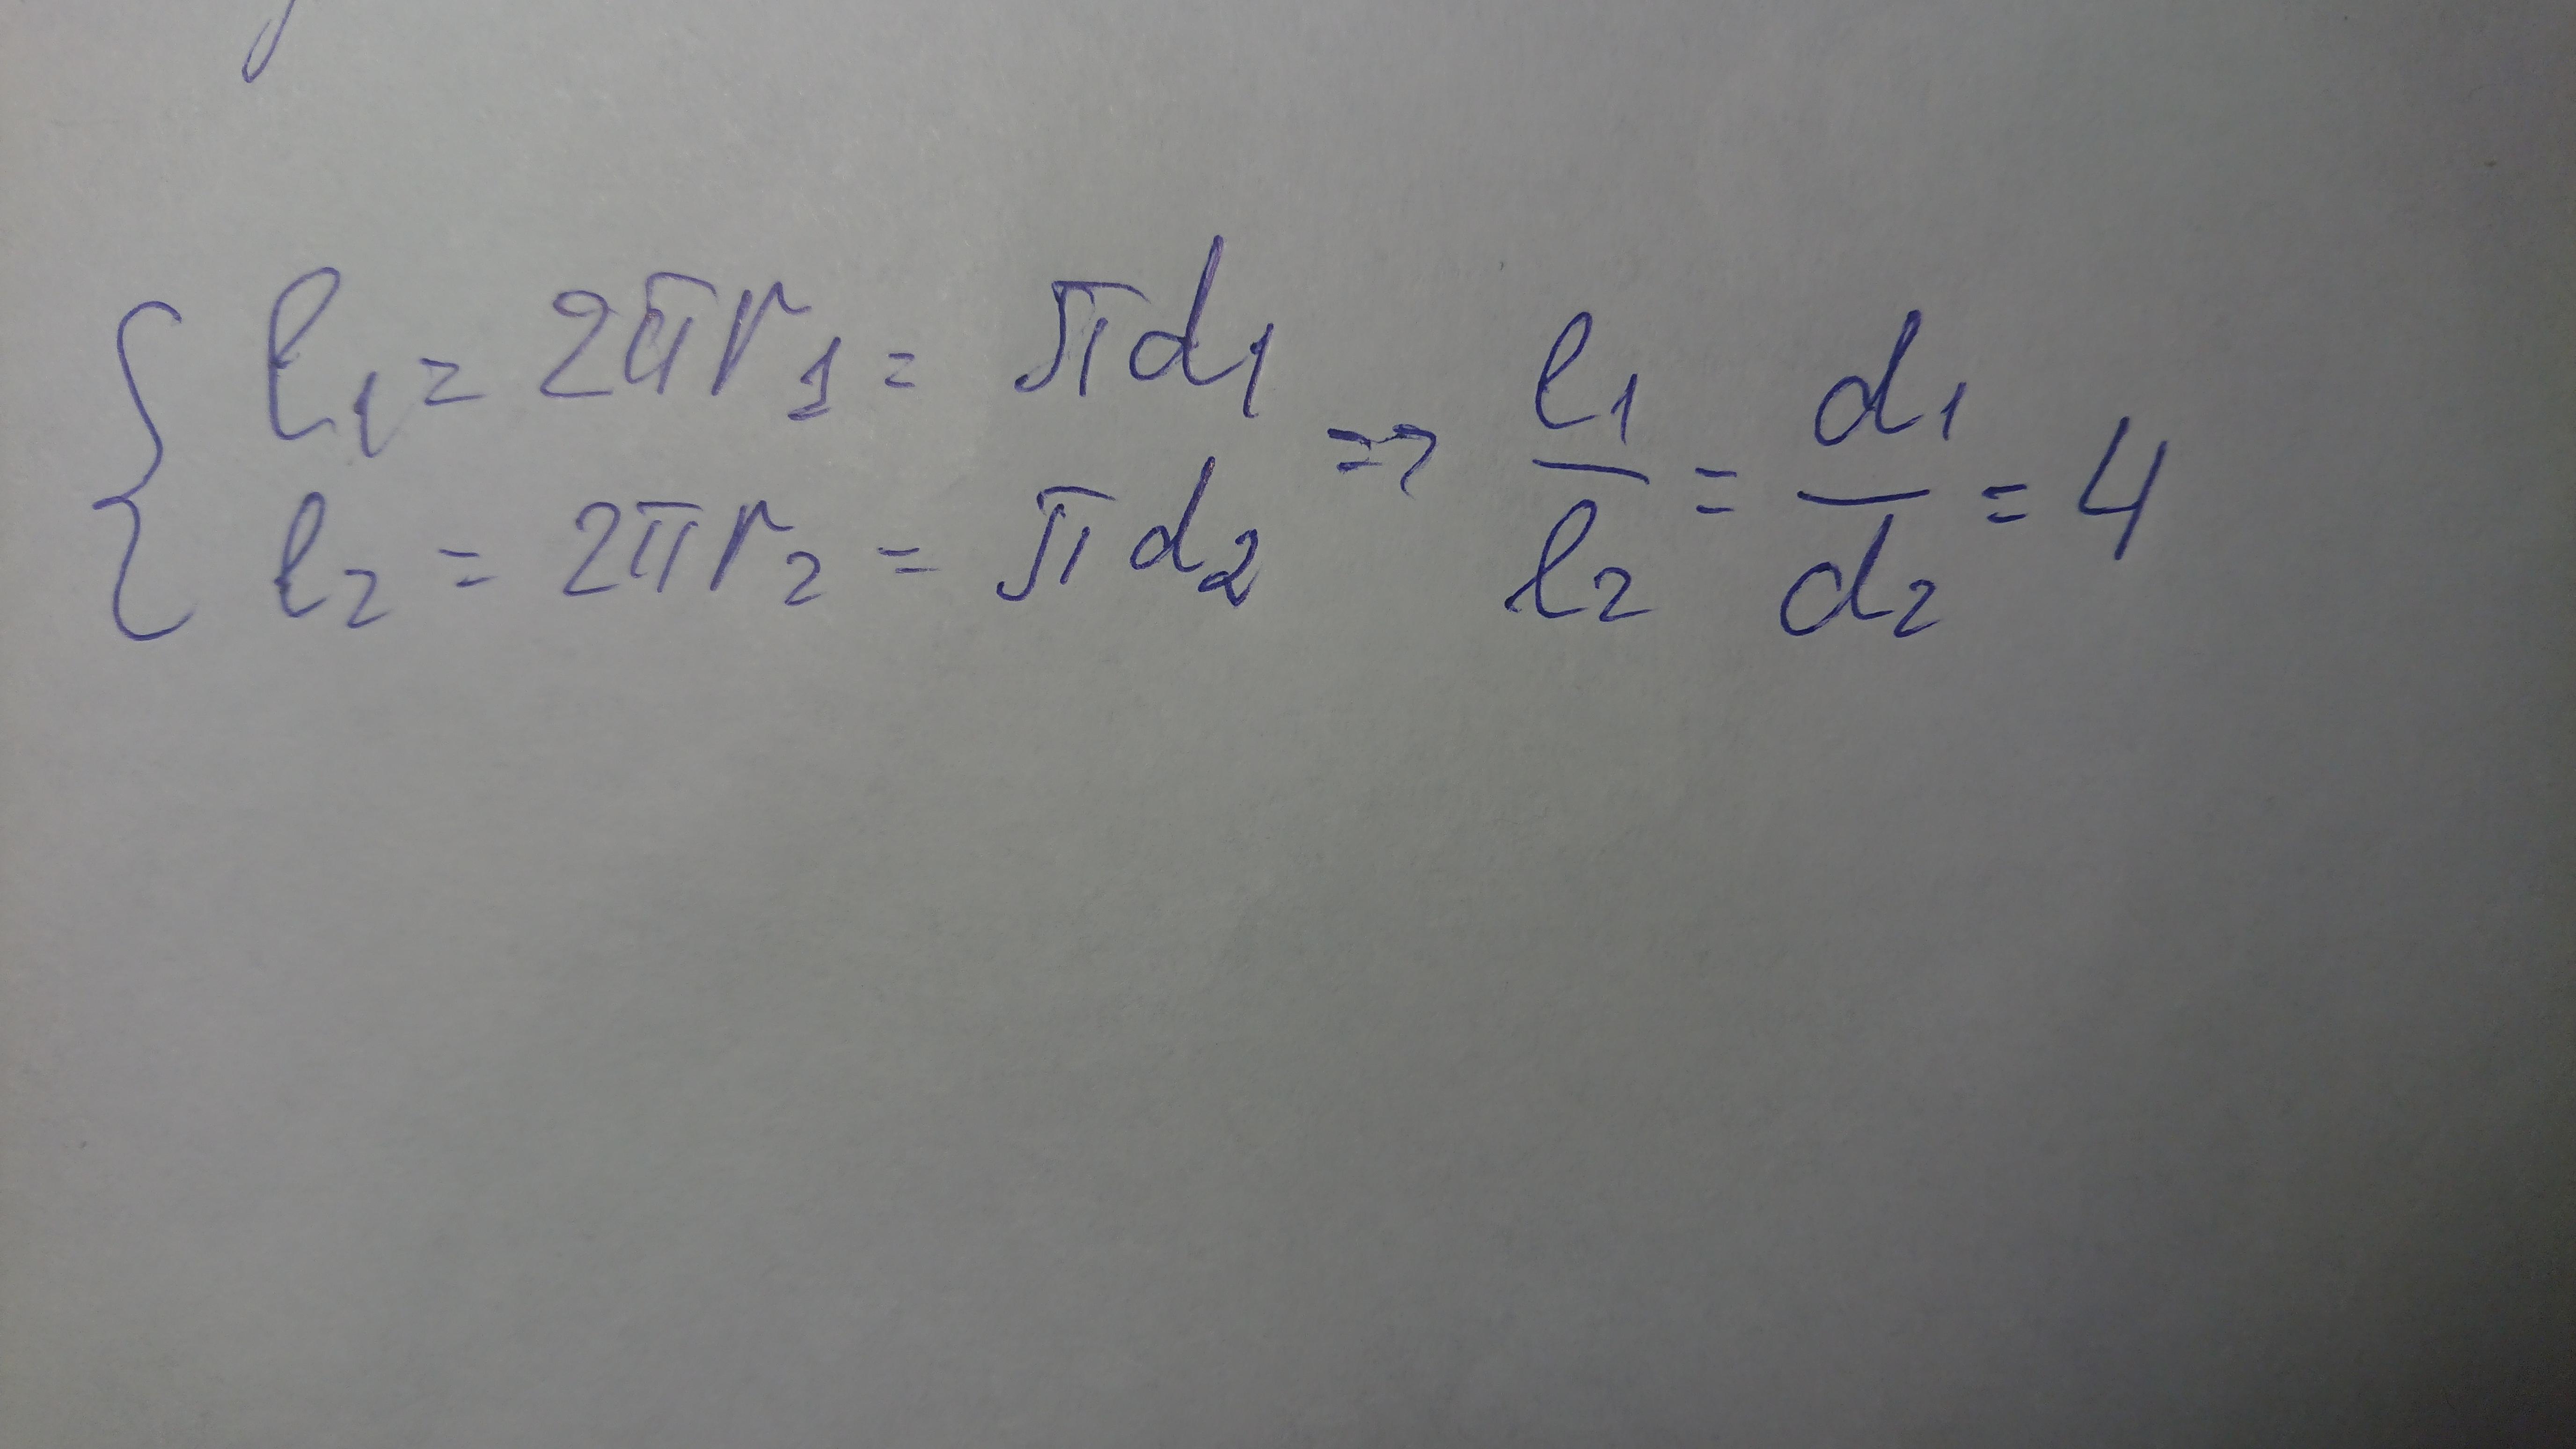 l₁ = 2πr₁ = πd₁
l₂ = 2πr₂ = πd₂ => l₁/l₂ = d₁/d₂ = 4